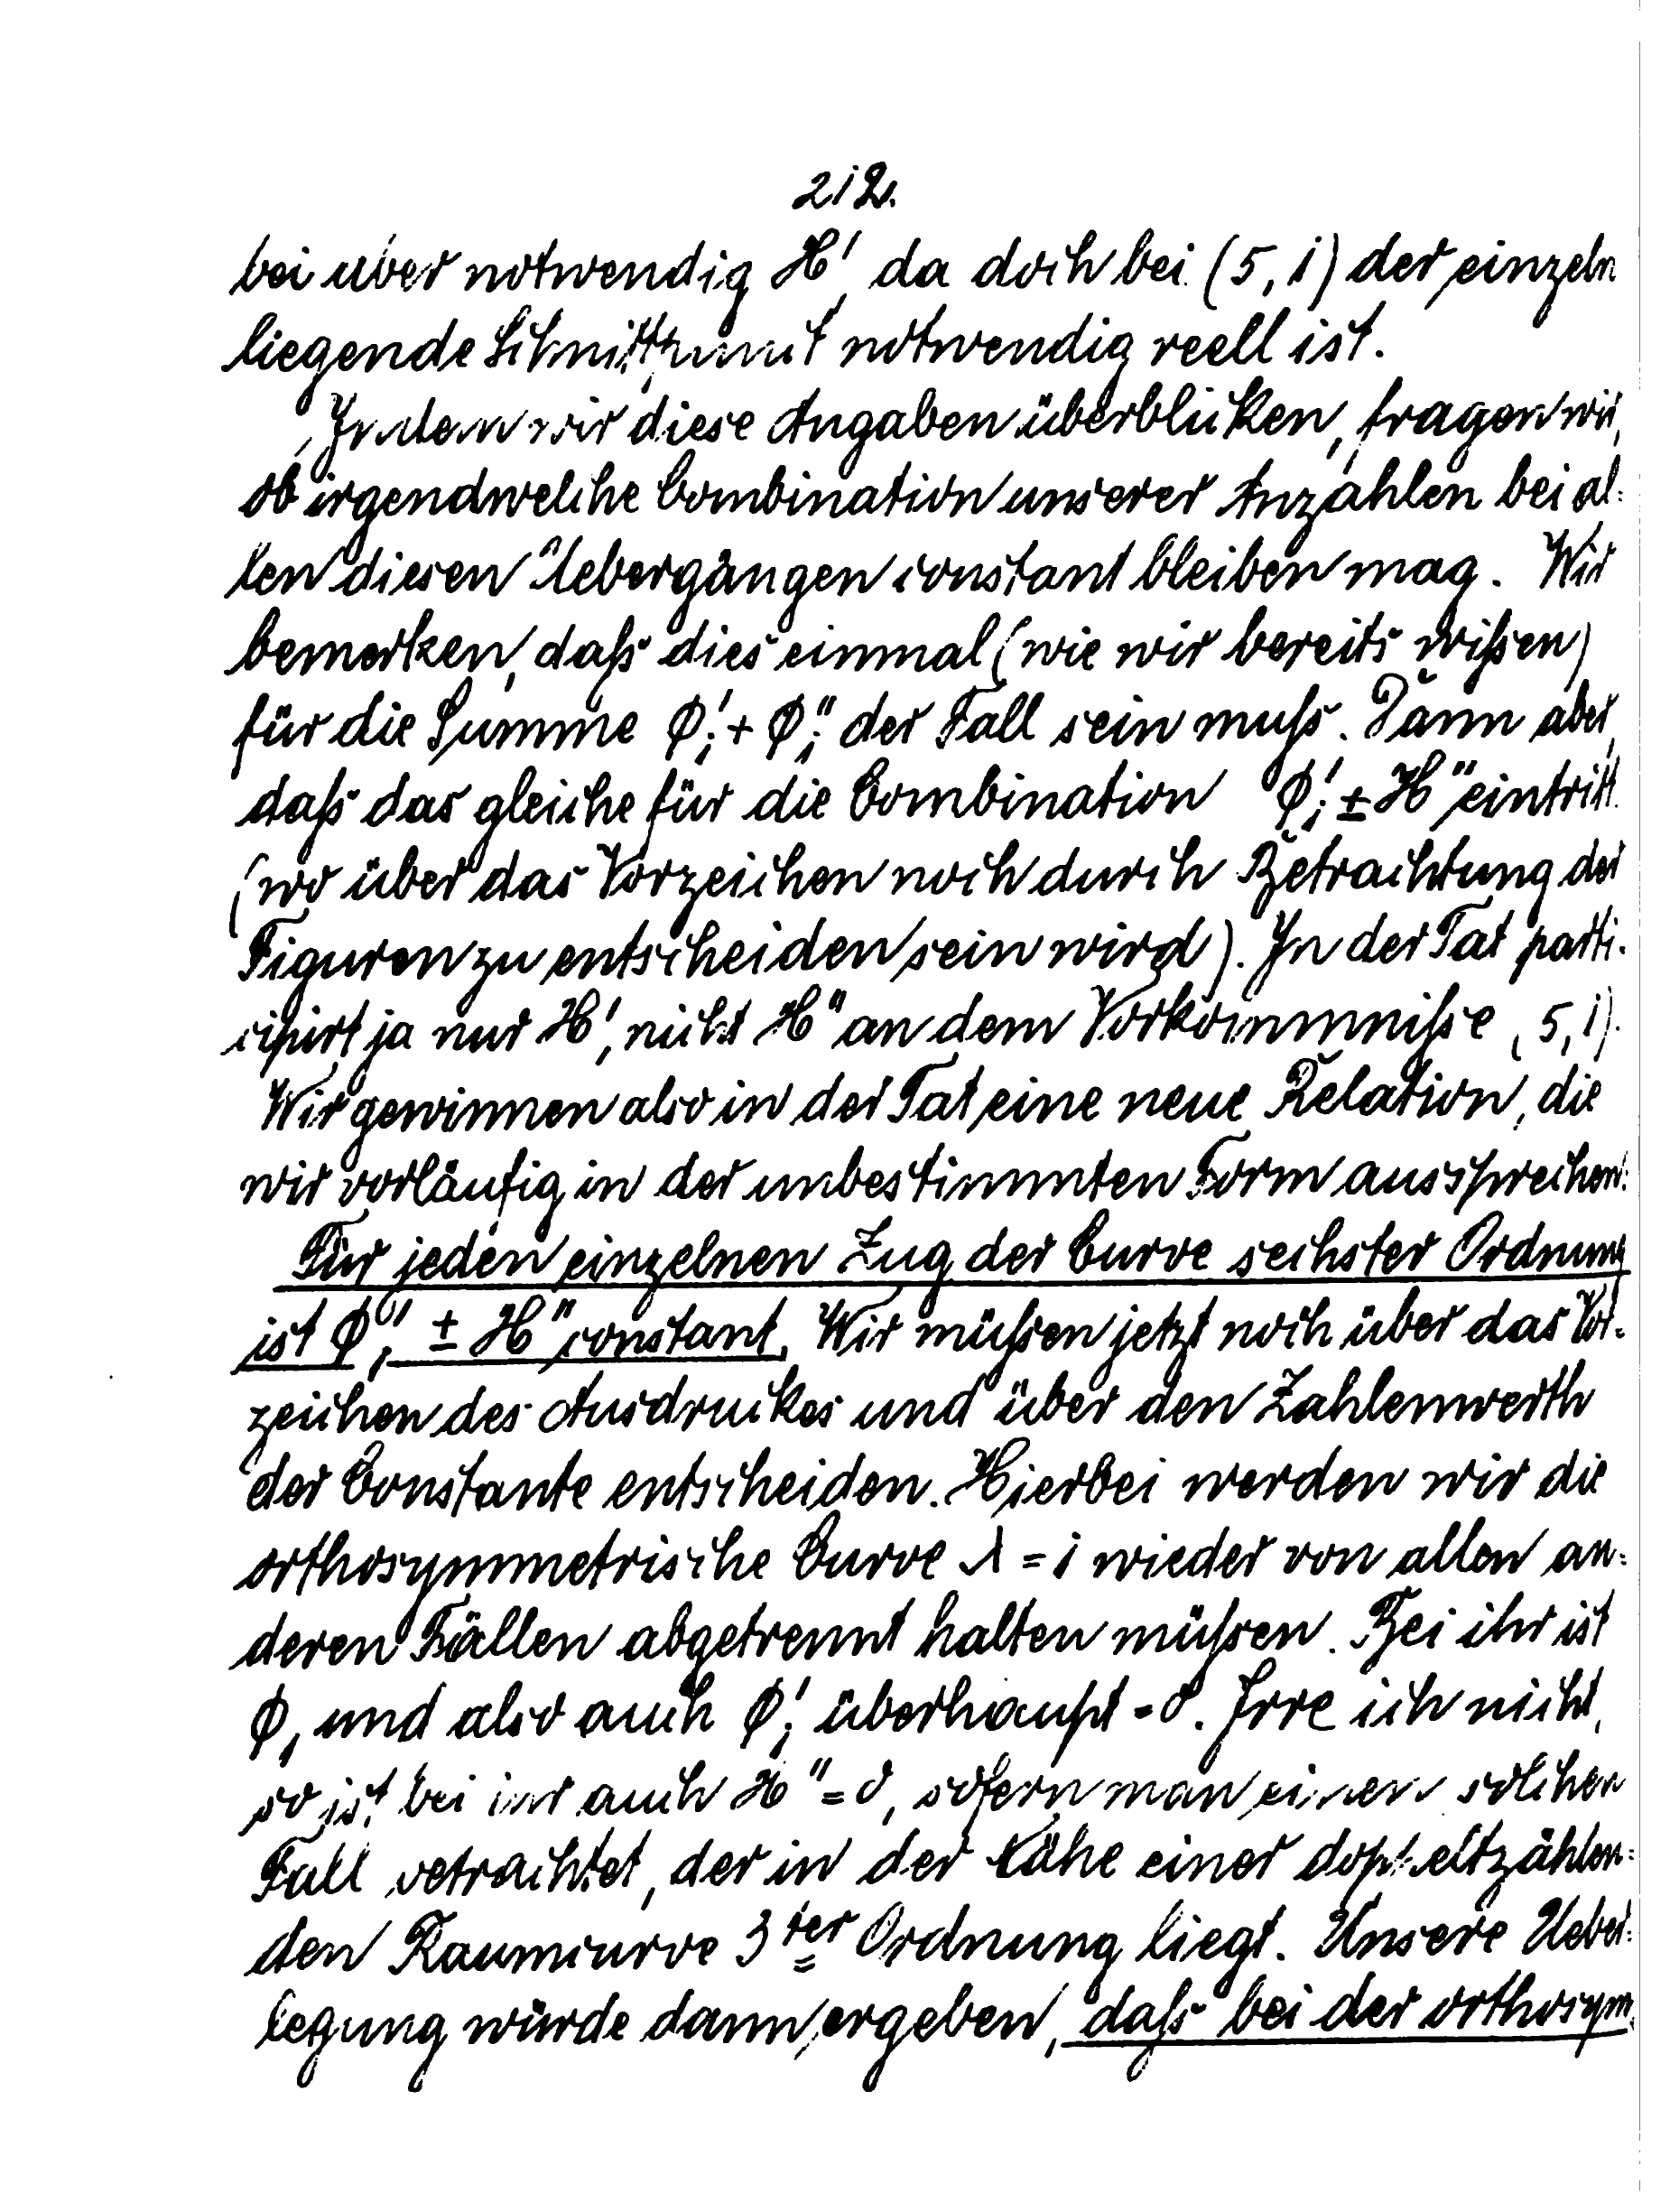 212.
bei aber notwendig H′, da doch bei (5, 1) der einzeln
liegende Schnittpunkt notwendig reell ist.
Indem wir diese Angaben überblicken, fragen wir,
ob irgendwelche Combination unserer Anzahlen bei al-
len diesen Uebergängen constant bleiben mag. Wir
bemerken, daſs dies einmal (wie wir bereits wiſsen)
für die Summe Φ₁′ + Φ₁″ der Fall sein muſs. Dann aber,
daſs das gleiche für die Combination Φ₁′ ± H″ eintritt
(wo über das Vorzeichen noch durch Betrachtung der
Figuren zu entscheiden sein wird). In der Tat parti-
cipirt ja nur H′, nicht H″ an dem Vorkommniſse (5, 1).
Wir gewinnen also in der Tat eine neue Relation, die
wir vorläufig in der unbestimmten Form aussprechen:
Für jeden einzelnen Zug der Curve sechster Ordnung
ist Φ₁′ ± H″ constant. Wir müſsen jetzt noch über das Vor-
zeichen des Ausdruckes und über den Zahlenwerth
der Constante entscheiden. Hierbei werden wir die
orthosymmetrische Curve λ = 1 wieder von allen an-
deren Fällen abgetrennt halten müſsen. Bei ihr ist
Φ₁ und also auch Φ₁′ überhaupt = 0. Irre ich nicht,
so ist bei ihr auch H″ = 0, sofern man einen solchen
Fall betrachtet, der in der Nähe einer doppeltzählen-
den Raumcurve 3ter Ordnung liegt. Unsere Ueber-
legung würde dann ergeben, daſs bei der orthosym-